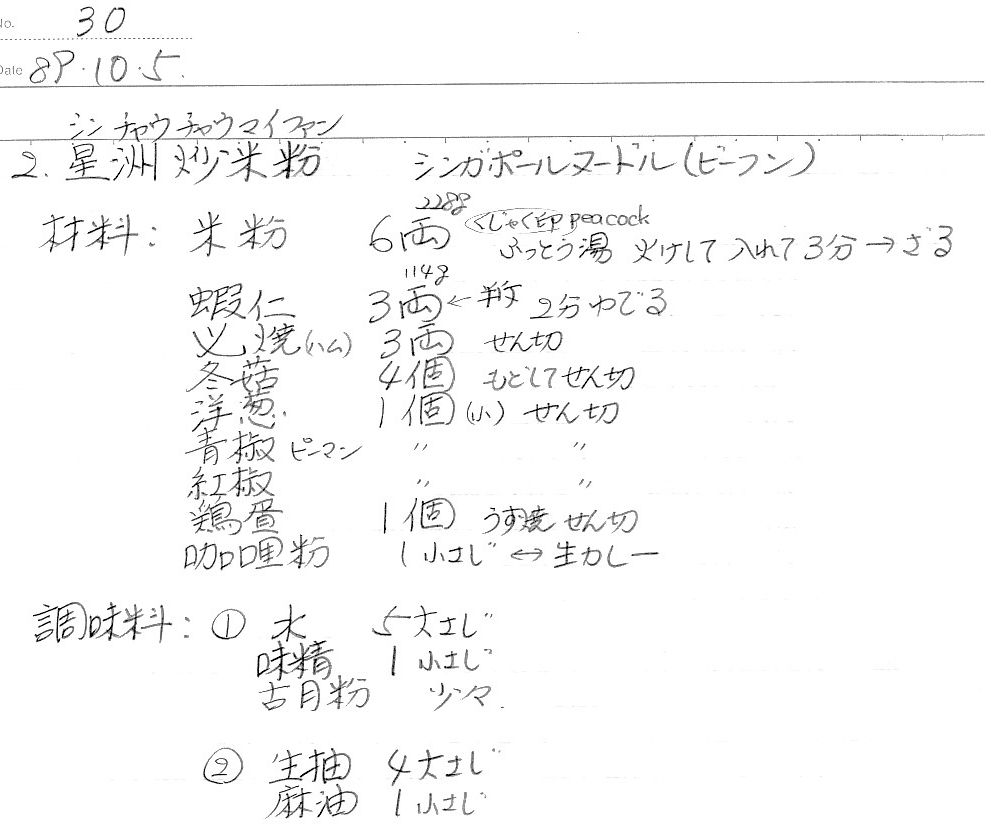 No. 30
Date 89・10・5.
シンチャウチャウマイファン
2. 星洲炒米粉 シンガポールヌードル(ビーフン)
228g くじゃく印 peacock
材料: 米粉 6両 ふっとう湯 火けして入れて3分→ざる
114g
蝦仁 3両← 2分ゆでる
叉焼(ハム) 3両 せん切
冬菇 4個 もどしてせん切
洋葱 1個(小) せん切
青椒 ピーマン 〃 〃
紅椒 〃 〃
鶏蛋 1個 うす焼せん切
咖哩粉 1小さじ ↔ 生カレー
調味料: ① 水 5大さじ
味精 1小さじ
古月粉 少々.
② 生抽 4大さじ
麻油 1小さじ